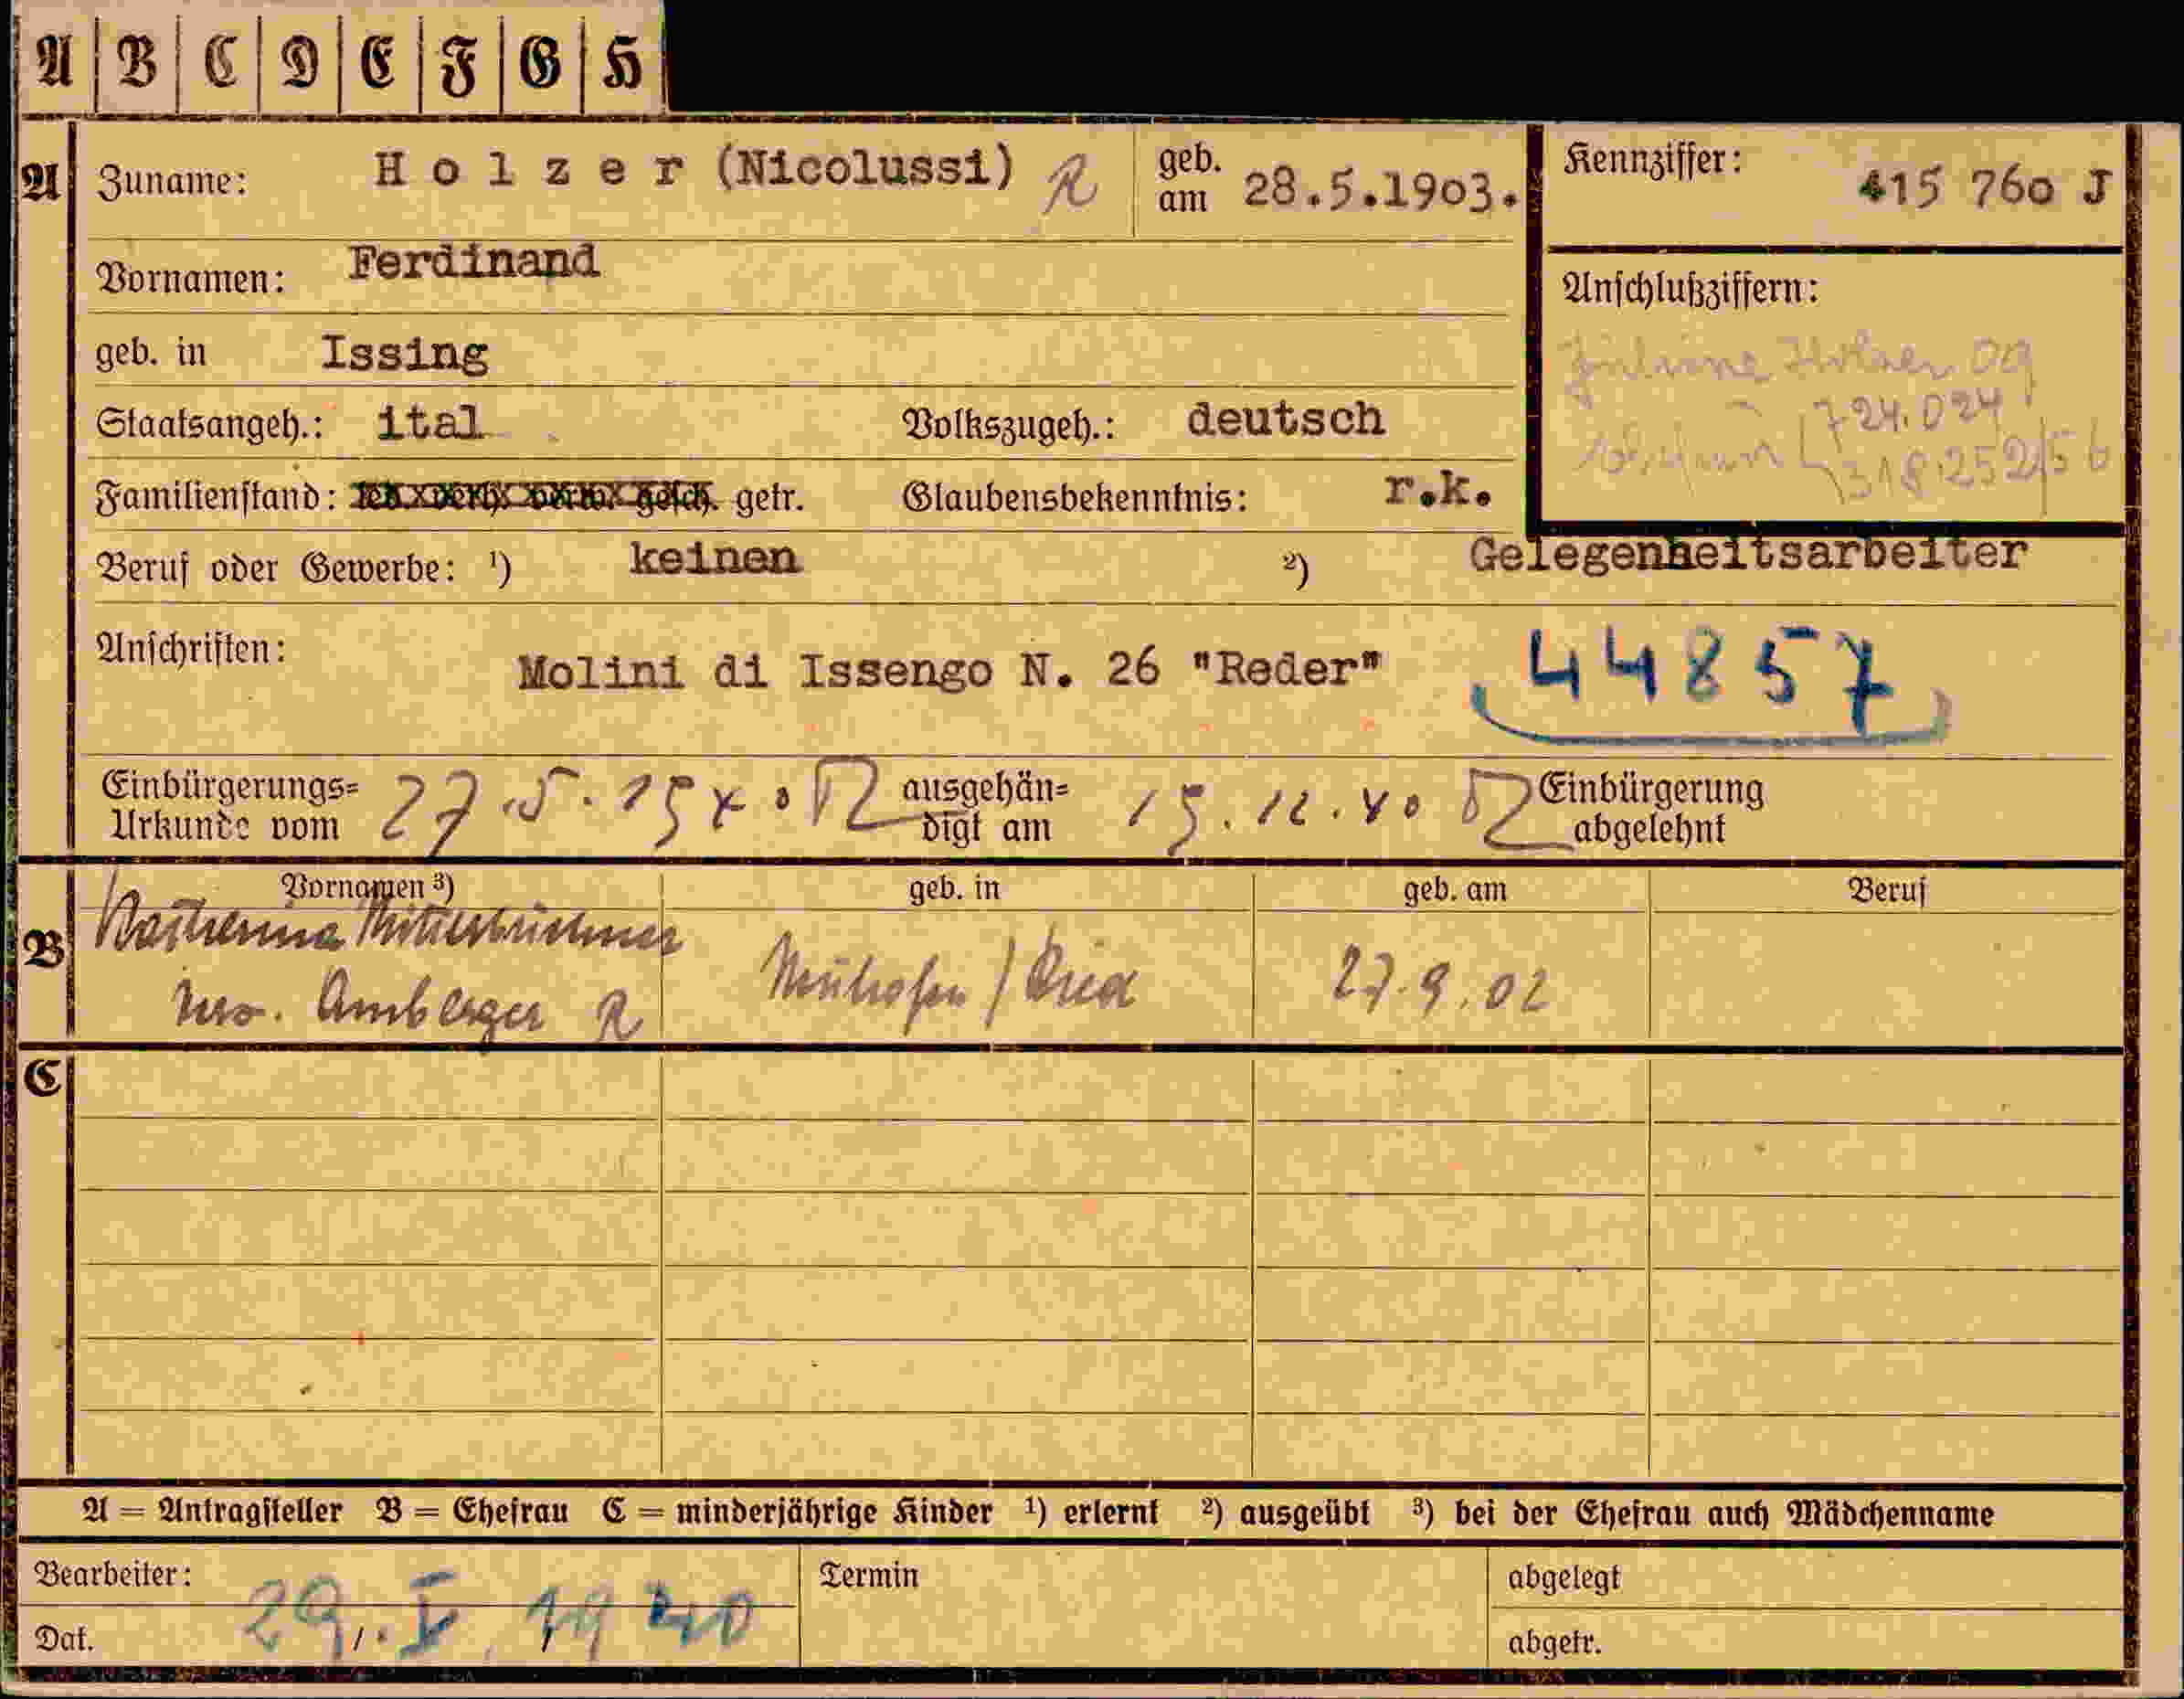 A B C D E F G H
A Zuname: Holzer (Nicolussi) R geb. am 28.5.1903.
Kennziffer: 415 760 J
Vornamen: Ferdinand
Anschlußziffern:
geb. in Issing
724.024
318.252/56
Staatsangeh.: ital Volkszugeh.: deutsch
Familienstand: led. verh. verw. gesch. getr. Glaubensbekenntnis: r.k.
Beruf oder Gewerbe: ¹) keinen ²) Gelegenheitsarbeiter
Anschriften: Molini di Issengo N. 26 "Reder" 44857
Einbürgerungs=
Urkunde vom 27.5.1940 ausgehän=
digt am 15.12.40 Einbürgerung
abgelehnt
B Vornamen ³) geb. in geb. am Beruf
Katherina
Amberger R / Ried 27.9.02
C
A = Antragsteller B = Ehefrau C = minderjährige Kinder ¹) erlernt ²) ausgeübt ³) bei der Ehefrau auch Mädchenname
Bearbeiter: Termin abgelegt
Dat. 29. V. 1940 abgetr.